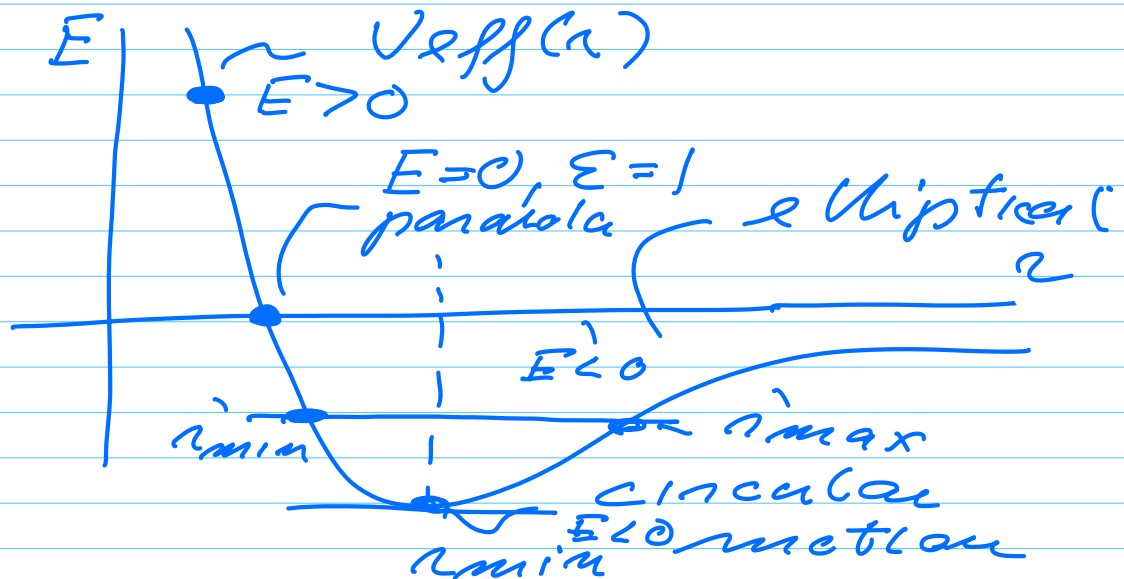 E
Veff(r)
E>0
E=0, ε=1
parabola
elliptical
r
E<0
rmin
rmax
circular
E<0 motion
rmin